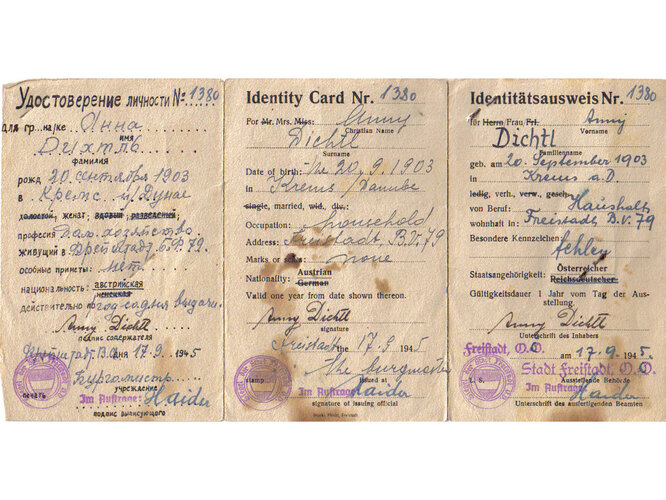 Удостоверение личности № 1380
для гр-на/ке Анна
имя
Дихтль
фамилия
рожд 20 сентября 1903
в Кремс н/Дунае
холостой, женат, вдовый, разведеный;
професия Дом. хозяйство
живущий в Фрейштадт Б.Ф. 79
особные приметы: нет
национальность: австрийская
немецкая
действительно по год со дня выдачи.
Anny Dichtl
подпис содержателя
17. 9. 1945
Бургомистр
учреждение
печать Im Auftrage: Haider
подпис выписующого
Identity Card Nr. 1380
For Mr. Mrs. Miss: Anny
Christian Name
Dichtl
Surname
Date of birth: the 20. 9. 1903
in Krems /Danube
single, married, wid, div.:
Occupation: household
Address: Freistadt, B.V. 79
Marks or scars: none
Nationality: Austrian
German
Valid one year from date shown thereon.
Anny Dichtl
signature
Freistadt the 17. 9. 1945
the burgmaster
stamp issued at
Im Auftrage: Haider
signature of issuing official
Identitätsausweis Nr. 1380
für Herrn Frau Frl. Anny
Vorname
Dichtl
Familienname
geb. am 20. September 1903
in Krems a.D.
ledig, verh., verw., gesch.
von Beruf: Haushalt
wohnhaft in Freistadt B.V. 79
Besondere Kennzeichen
fehlen
Staatsangehörigkeit: Österreicher
Reichsdeutscher
Gültigkeitsdauer 1 Jahr vom Tag der Aus-
stellung.
Anny Dichtl
Unterschrift des Inhabers
Freistadt, O.D. am 17. 9. 1945
Stadt Freistadt, O.D.
L. S. Ausstellende Behörde
Im Auftrage: Haider
Unterschrift des ausfertigenden Beamten